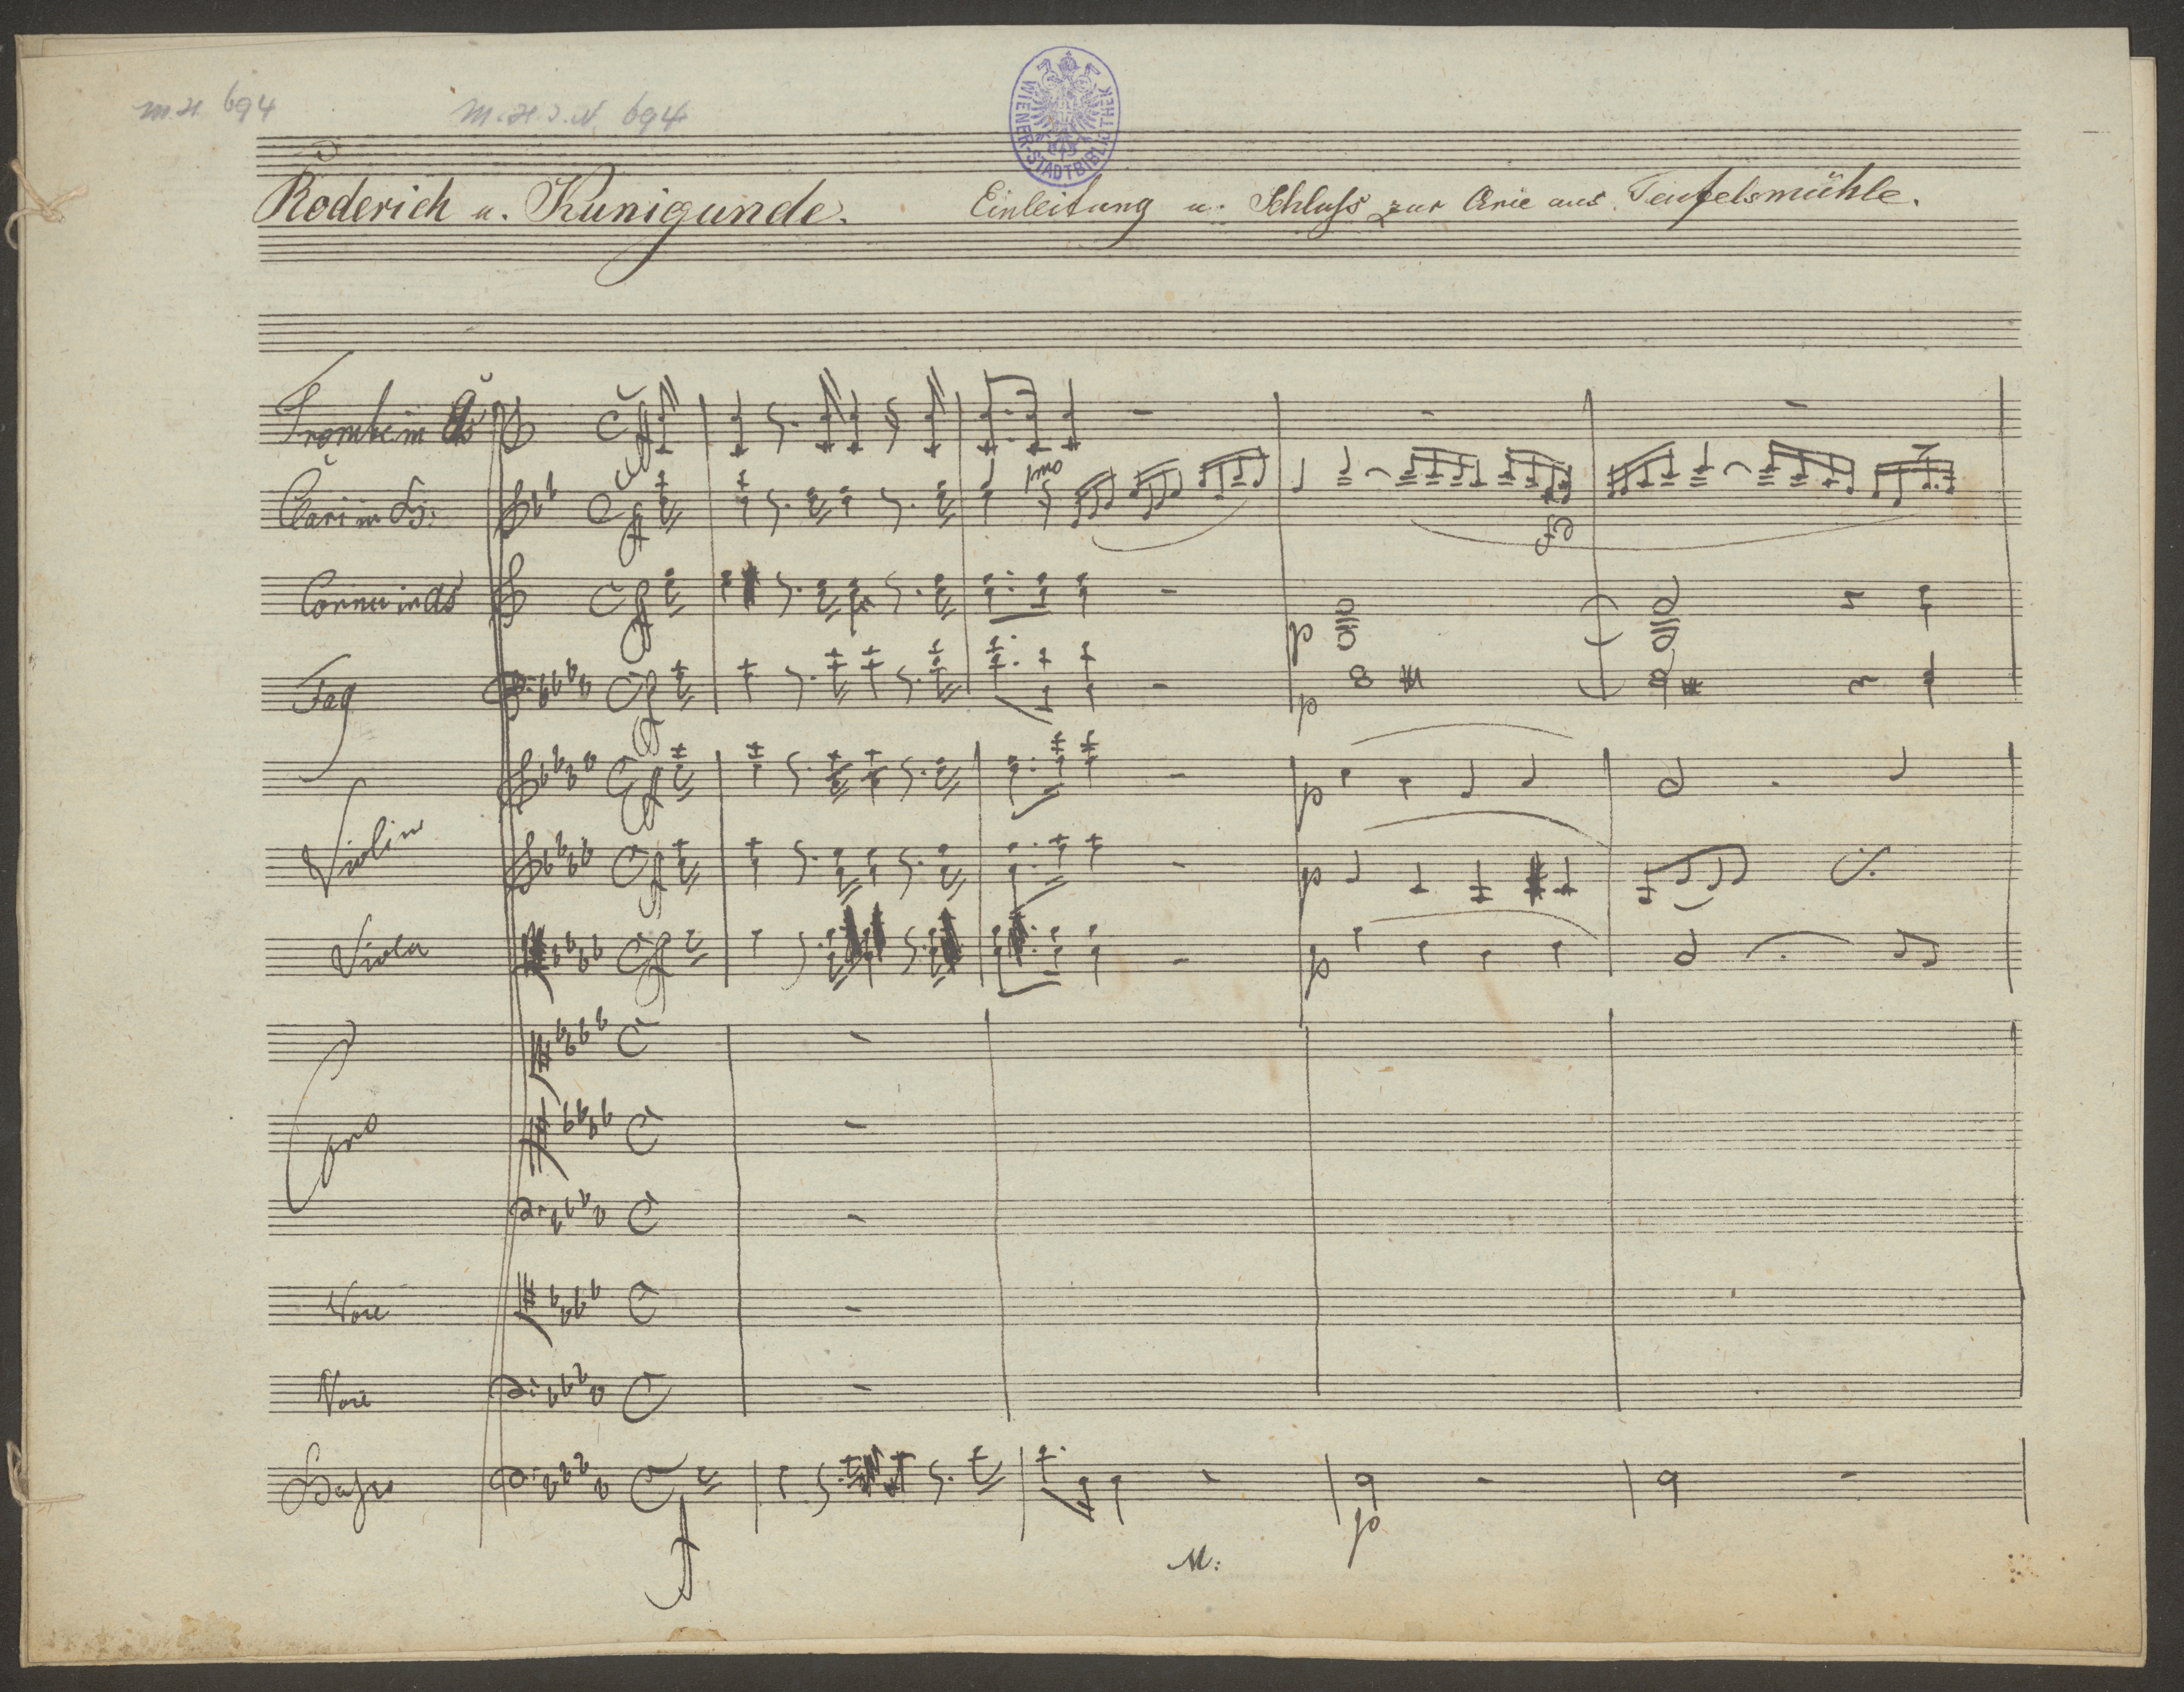 M.H. 694
M.H.I.N 694
WIENER-STADTBIBLIOTHEK
Roderich u. Kunigunde.
Einleitung u. Schluſs zur Arie aus Teufelsmühle.
Trombe in As
Clari in
Cornu in As
Fag
Violin
Viola
Coro
Voce
Voce
Basso
1mo
p
p
p
p
p
p
M: